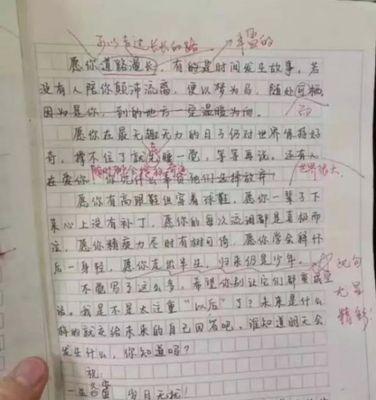 可以有过长长的路
辛酸的
愿你道路漫长，有的是时间发生故事，若
没有人陪你颠沛流离，便以梦为马，随处可栖
因为是你，到的地方一定温暖为向。
愿你在最无趣无力的日子仍对世界保持好
奇，撑不住了就宽睡一觉，等等再说，还有人
在爱你，你凭什么
世界很大
愿你有高跟鞋但穿着球鞋，愿你一辈子下
来心上没有补丁，愿你的每次流泪都是喜极而
泣，愿你精疲力尽时有树可倚，愿你学会释怀
后一身轻，愿你走出半生，归来仍是少年。
不能写了这么多，希望你别让它们都变成空
话。我是不是太注重“以后”了？未来是什么
样的就交给未来的自己回答吧，谁知道明天会
发生什么，你知道吗？
祝：
岁月无忧！
沉句
尤显
精彩！